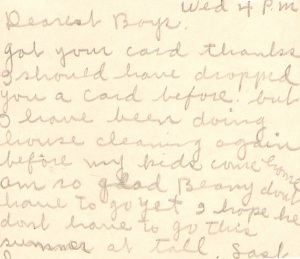 Wed 4 P.M
Dearest Boys.
got your card thanks
I should have dropped
you a card before. but
I have been doing
house cleaning again
before my kids come home
am so glad Beany dont
have to go yet I hope he
dont have to go this
summer at tall. Last